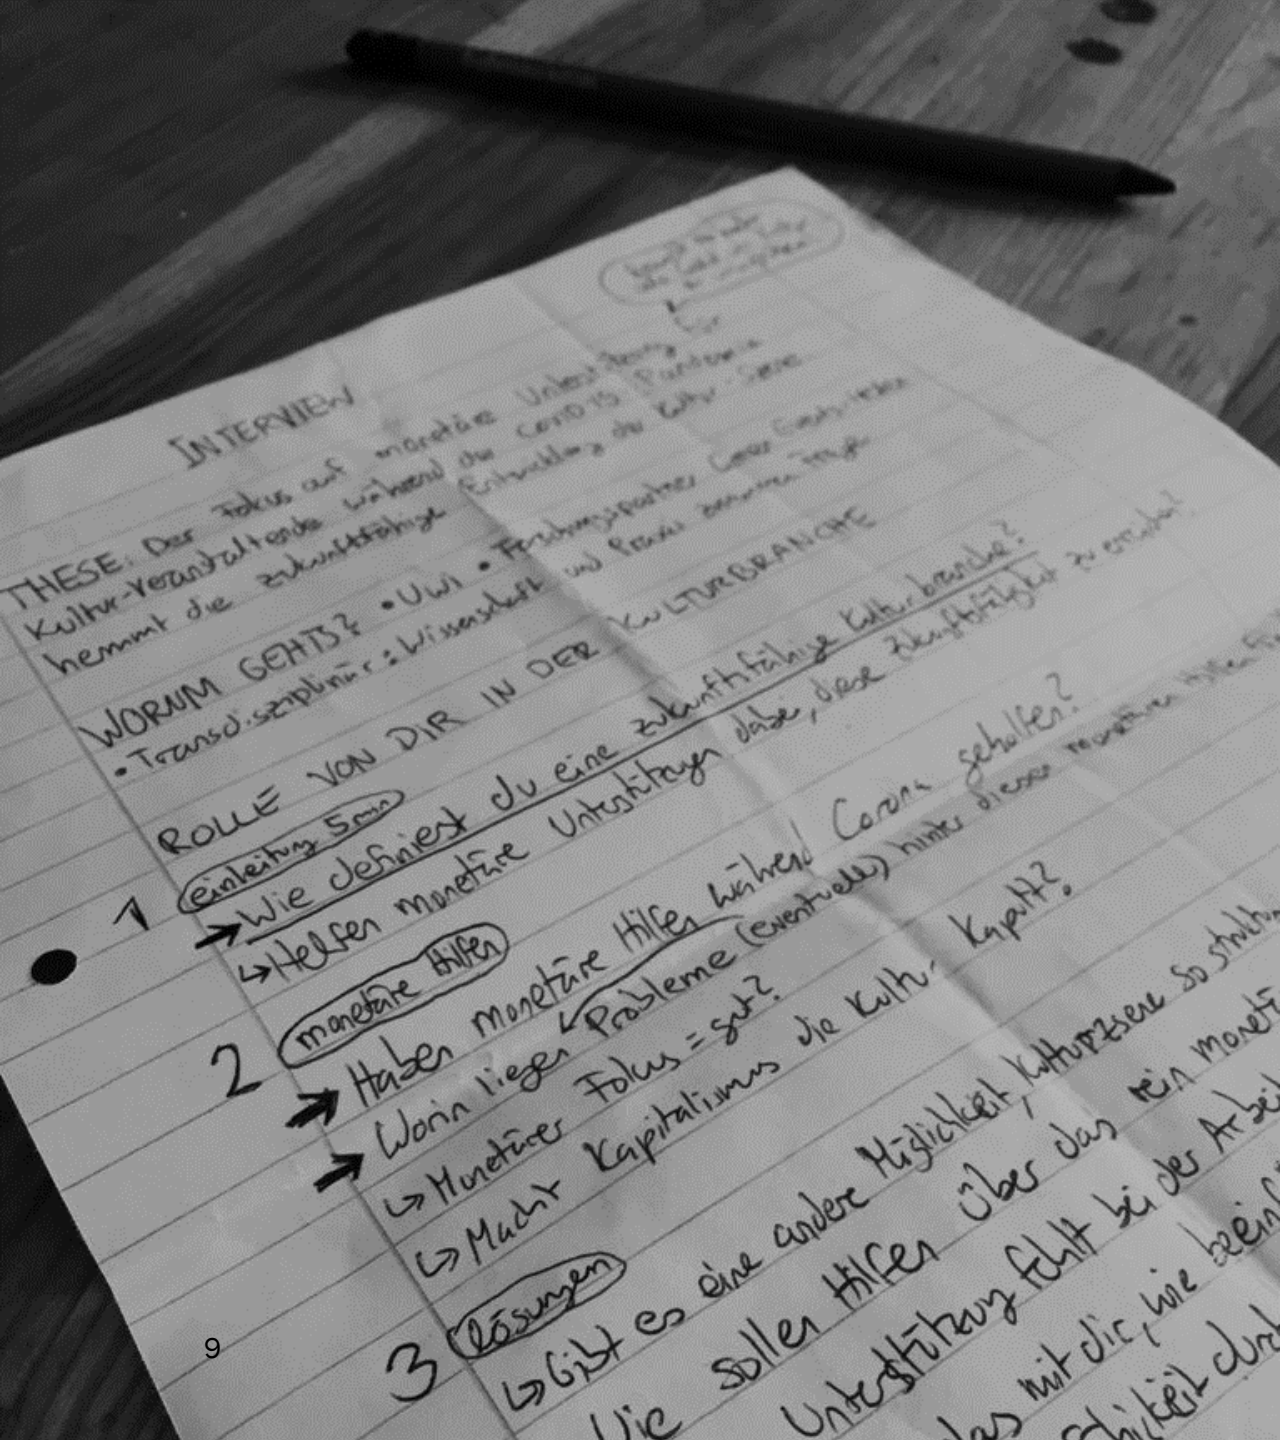 INTERVIEW
für
THESE: Der Fokus auf monetäre Unterstützung
Kultur-Veranstaltende während der COVID 19 Pandemie
hemmt die zukunftsfähige Entwicklung der Kultur-Szene
WORUM GEHTS? • Uwi • Forschungspartner
• Transdisziplinär: Wissenschaft und Praxis zusammen
ROLLE VON DIR IN DER KULTURBRANCHE
einleitung 5min
1 → Wie definierst du eine zukunftsfähige Kulturbranche?
↳ Helfen monetäre Unterstützungen dabei, diese Zukunftsfähigkeit zu erreichen?
2 monetäre Hilfen
→ Haben monetäre Hilfen während Corona geholfen?
→ Worin liegen Probleme (eventuell) hinter diesen monetären Hilfen
↳ Monetärer Fokus = gut?
↳ Macht Kapitalismus die Kultur kaputt?
3 lösungen
↳ Gibt es eine andere Möglichkeit, so
sollen Hilfen über das rein
Unterstützung fehlt bei der
das mit dir, wie
durch
9